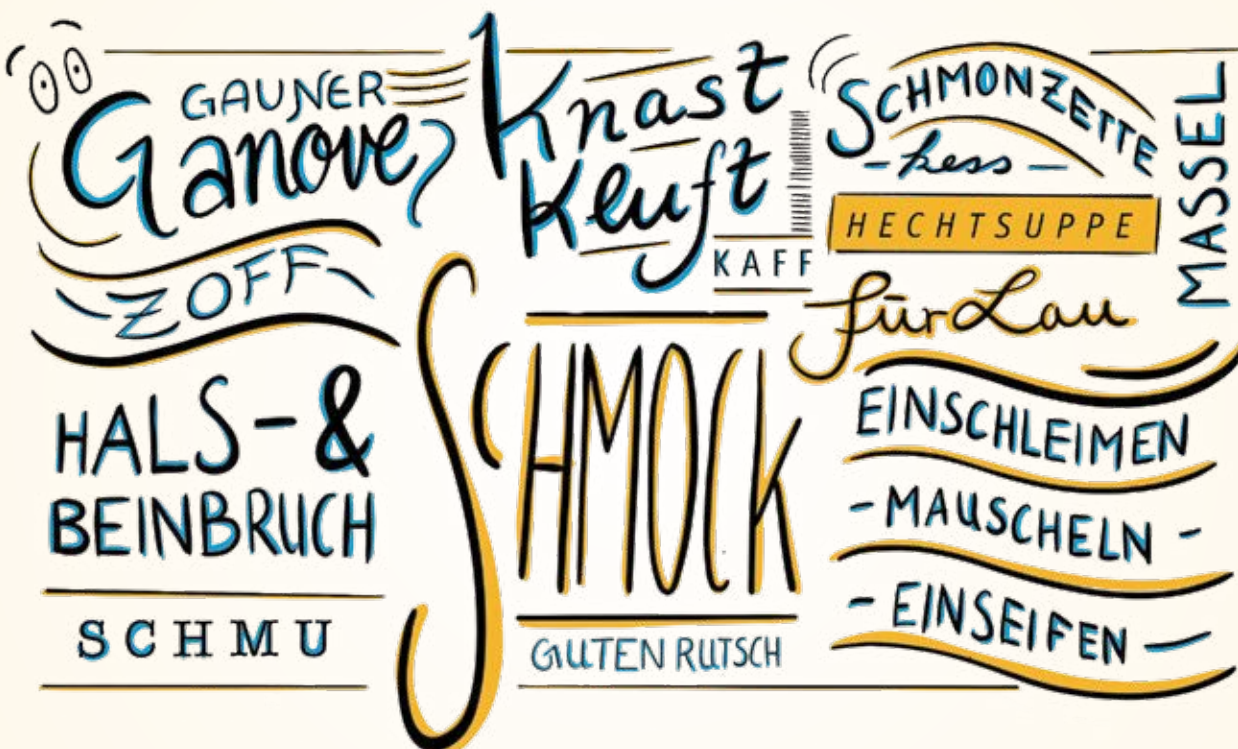 GAUNER
Ganove
ZOFF
HALS- &
BEINBRUCH
SCHMU
Knast
Kluft
KAFF
SCHMOCK
GUTEN RUTSCH
SCHMONZETTE
- kess -
HECHTSUPPE
für Lau
EINSCHLEIMEN
- MAUSCHELN -
- EINSEIFEN -
MASSEL